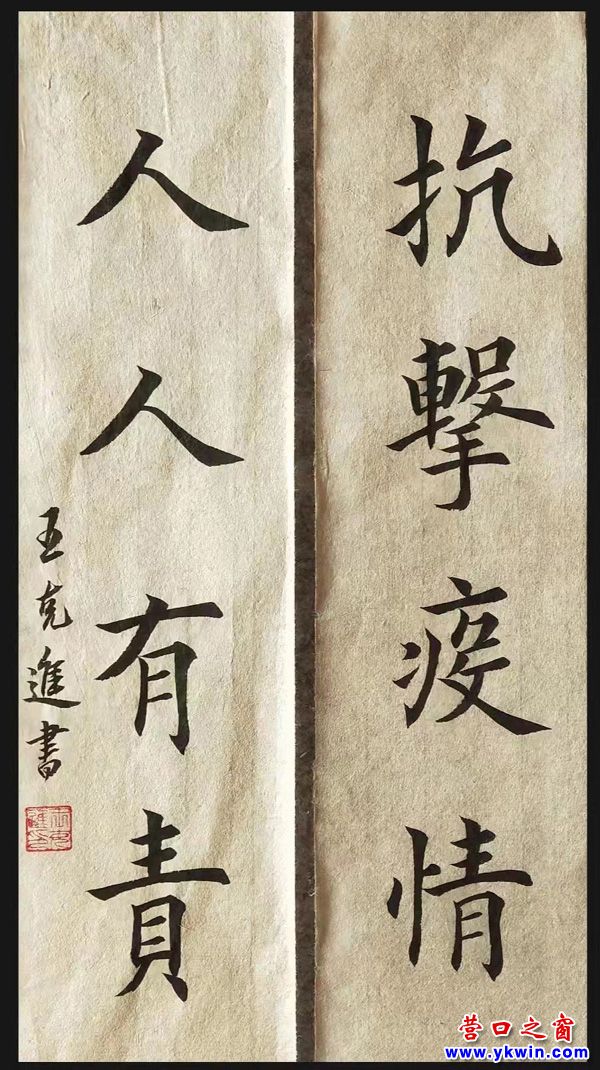 抗擊疫情
人人有責
王克進書
营口之窗
www.ykwin.com